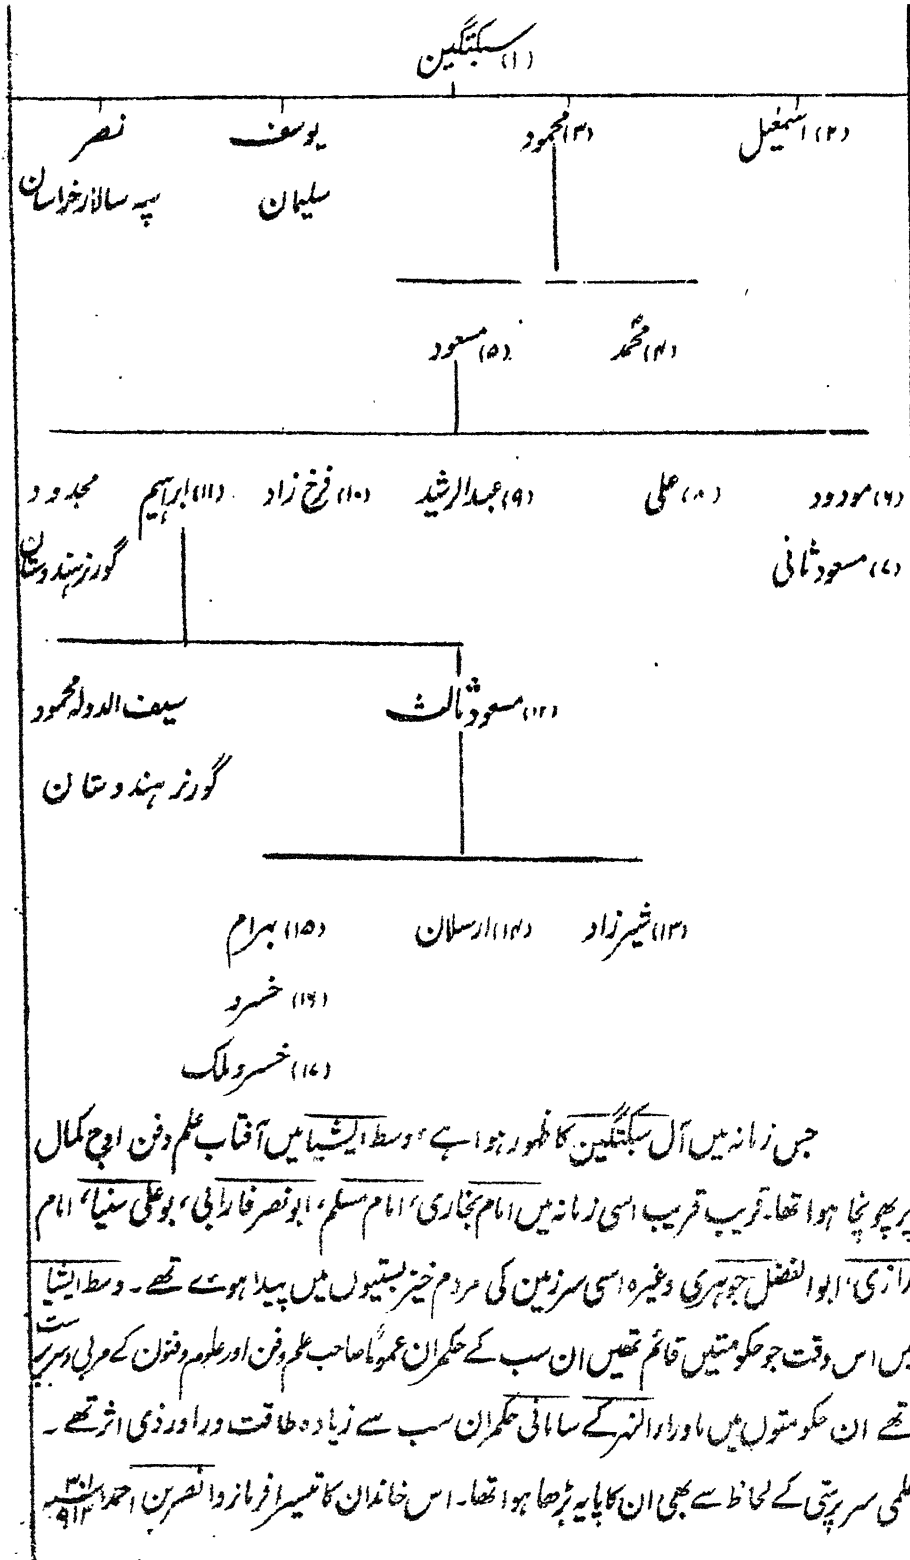 (۱) سبکتگین
(۲) اسمٰعیل (۳) محمود یوسف نصر
سلیمان سپہ سالار خراسان
(۴) محمد (۵) مسعود
(۶) مودود (۸) علی (۹) عبدالرشید (۱۰) فرخ زاد (۱۱) ابراہیم مجدود
(۷) مسعود ثانی گورنر ہندوستان
(۱۲) مسعود ثالث سیف الدولہ محمود
گورنر ہندوستان
(۱۳) شیرزاد (۱۴) ارسلان (۱۵) بہرام
(۱۶) خسرو
(۱۷) خسرو ملک
جس زمانہ میں آل سبکتگین کا ظہور ہوا ہے، وسط ایشیا میں آفتاب علم و فن اوج کمال
پر پہونچا ہوا تھا۔ قریب قریب اسی زمانہ میں امام بخاری، امام مسلم، ابو نصر فارابی، بو علی سینا، امام
رازی، ابوالفضل جوہری وغیرہ اسی سرزمین کی مردم خیز بستیوں میں پیدا ہوے تھے۔ وسط ایشیا
میں اس وقت جو حکومتیں قائم تھیں ان سب کے حکمران عموماً صاحب علم و فن اور علوم و فنون کے مربی و سرپرست
تھے ان حکومتوں میں ماوراء النہر کے سامانی حکمران سب سے زیادہ طاقت ور اور ذی اثر تھے۔
علمی سرپرستی کے لحاظ سے بھی ان کا پایہ بڑھا ہوا تھا۔ اس خاندان کا تیسرا فرمانروا نصر بن احمد ۳۰۱ ۹۱۳